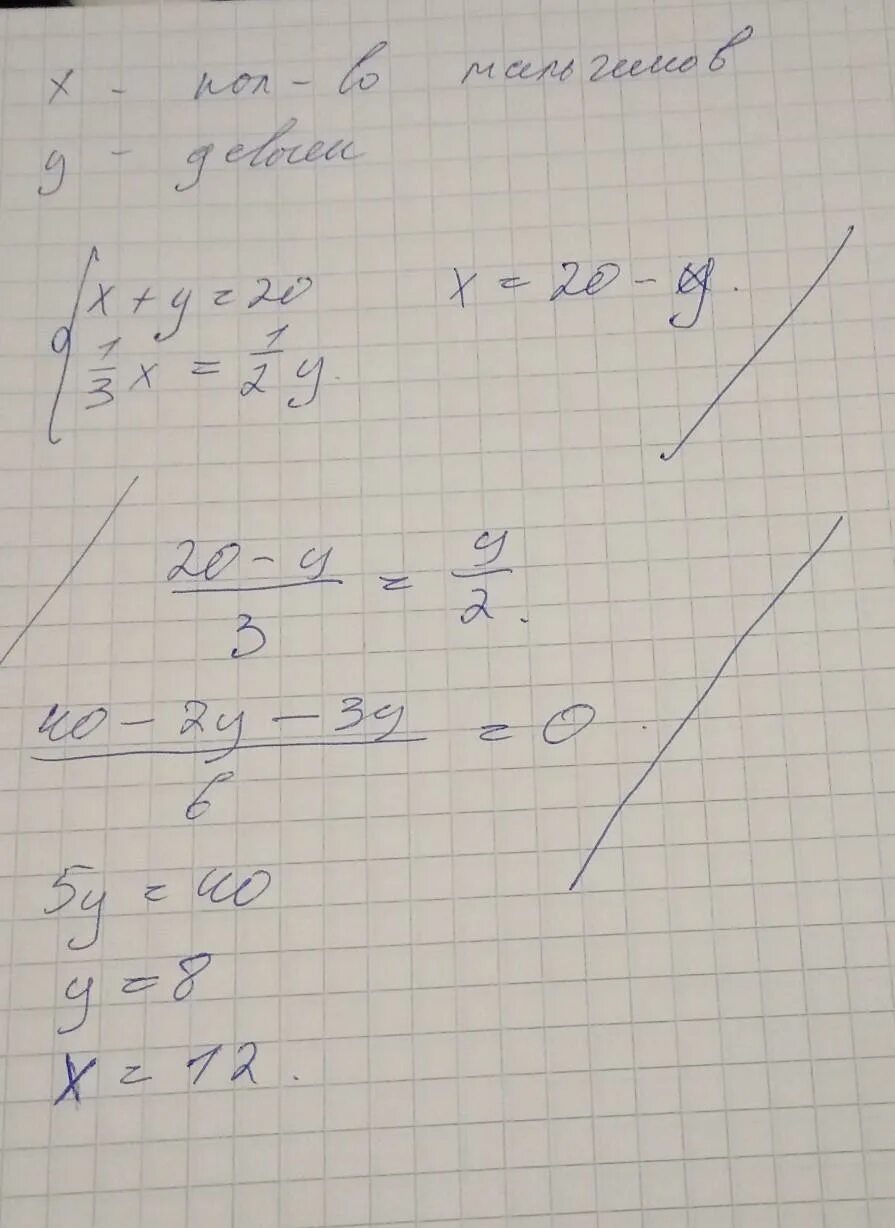 x - кол-во мальчиков
y - девочек
x + y = 20
x = 20 - y.
1/3 x = 1/2 y.
(20 - y)/3 = y/2.
(40 - 2y - 3y)/6 = 0.
5y = 40
y = 8
x = 12.